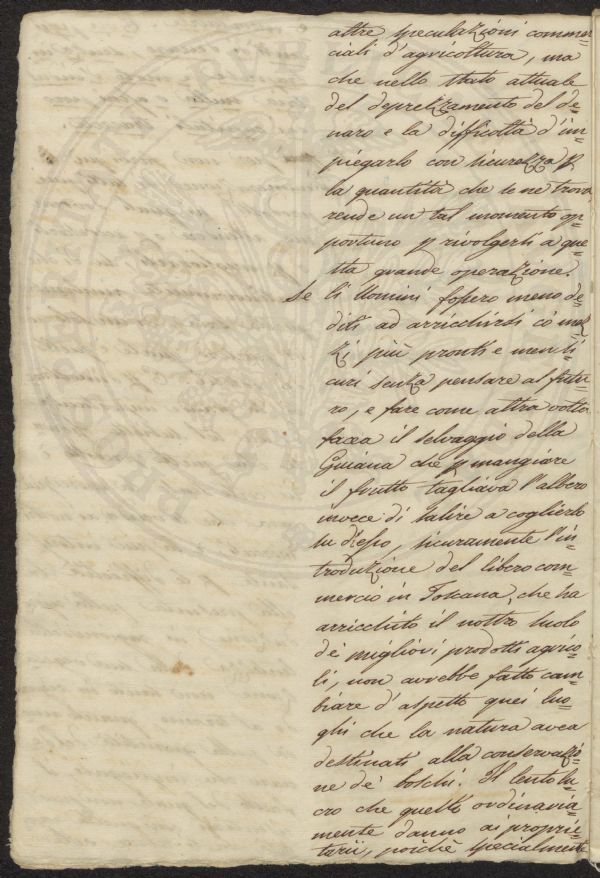 altre speculazioni commer=
ciali d'agricoltura, ma
che nello stato attuale
del deprezzamento del de=
naro e la difficoltà d'im=
piegarlo con sicurezza p
la quantità che se ne trova
rende un tal momento op=
portuno p rivolgersi a que=
sta grande operazione.
Se li Uomini fossero meno de=
diti ad arricchirsi cō mez=
zi più pronti e men si=
curi senza pensare al futu=
ro, e fare come altra volta
facea il selvaggio della
Guiana che p mangiare
il frutto tagliava l'albero
invece di salire a coglierlo
su d'esso, sicuramente l'in=
troduzione del libero com=
mercio in Toscana, che ha
arricchito il nostro suolo
de' migliori prodotti agrico=
li, non avrebbe fatto cam=
biare d'aspetto quei luo=
ghi che la natura avea
destinati alla conservazio=
ne de' boschi. Il lento lu=
cro che questi ordinaria=
mente danno ai proprie=
tarii, poichè specialmente